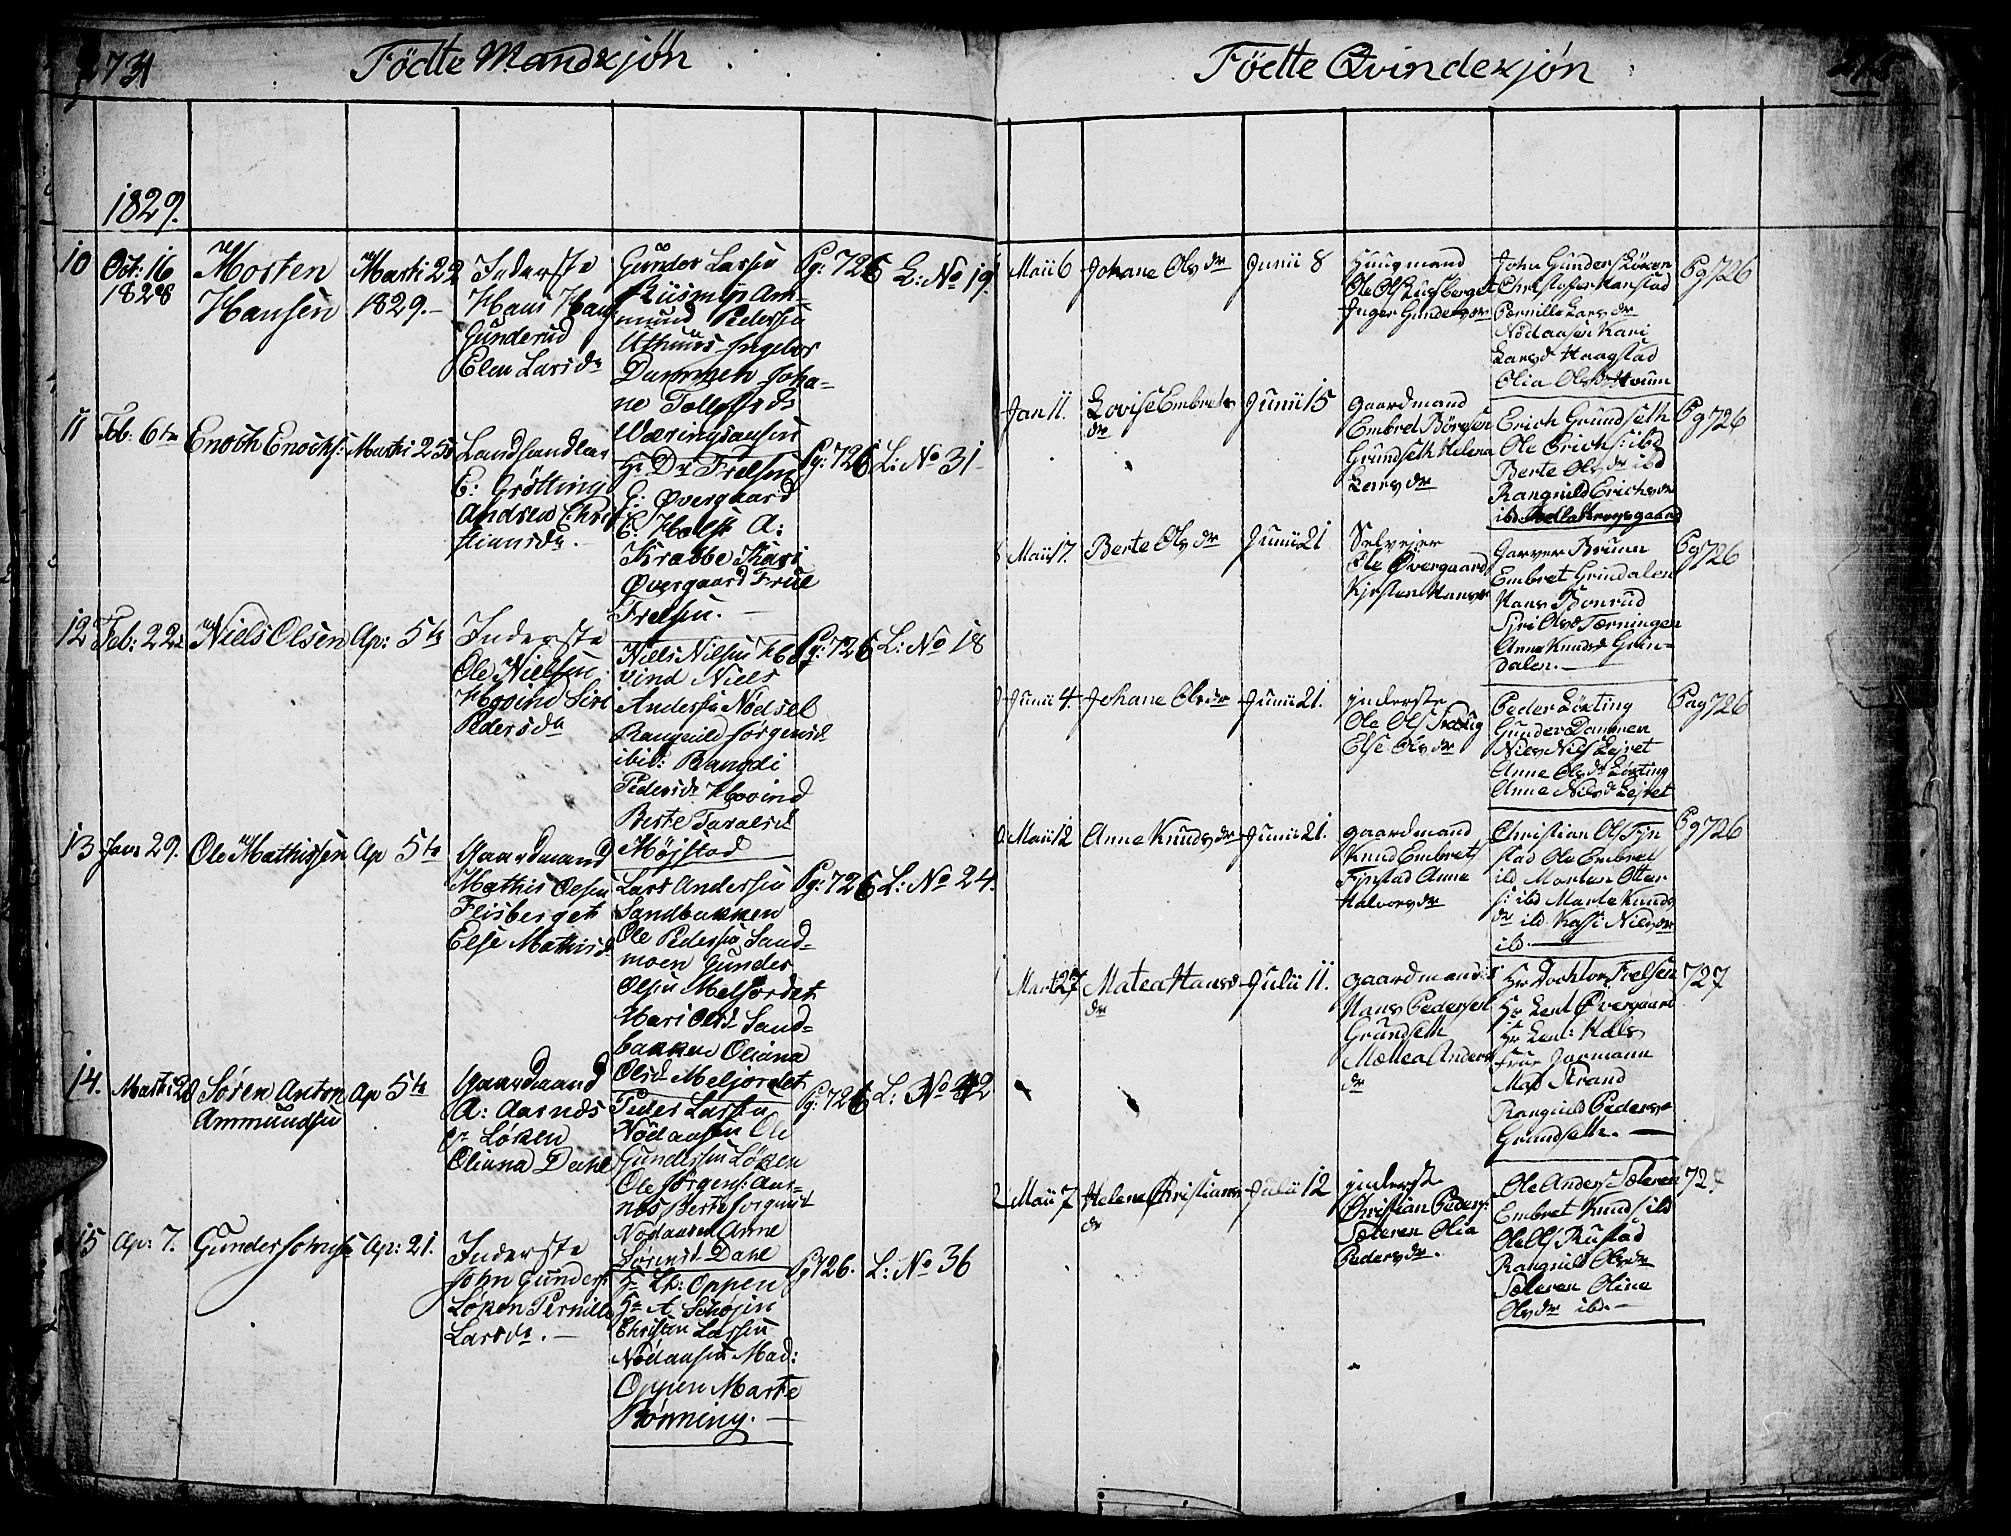 Födte Mandkjön
1829.
10
Oct: 16
1828
Morten
Hansen
Marti 22
1829.-
Inderste
Hans Hans
Gunderud
Elen Larsdr
Gunder Larsen
Am-
mund Pedersen
Ingebor
Dammen Joha-
ne Tollefsdr
Pg: 726
L: No 19.
11
Feb: 6te
Enoch Enochs:
Marti 25
Landhandler
E: Grötting
Andrea Chri
stiansdr.-
Hr Dr Frelsen
G: Øvergaard
C: Hals A:
Krabbe Kari
Øvergaard Frue
Frelsen.-
Pg: 726
L: No 31
12
Feb: 22
Niels Olsen
Ap: 5te
Inderste
Ole Nielsen
Hovind Siri
Pedersdr
Niels Nilsen Ho
vind Niels
Andersen Nödsel
Rangnild Jörgensd
ibid: Rangdi
Pedersdr Hovind
Berte Taralsd
Möistad
Pg: 726
L: No 18
13
Janr 29.
Ole Mathissen
Ap 5te
Gaardmand
Mathis Olsen
Flisberget
Else Mathisd
Lars Andersen
Sandbakken
Ole Pedersen Sand-
moen Gunder
Olsen Meljordet
Mari Olsd Sand-
bakken Oliana
Olsd Meljordet
Pg: 726
L: No 24.
14.
Marti 20
Sören Anton
Ammundsen
Ap 5te
Gaardmand
A: Aarnæs
Löken
Oliana Dahl
Peder Larsen
Nödaasen Ole
Gundersen Löken
Ole Jörgens: Aar-
næs Berte Jörgensd
Nödaasen Anne
Sörensd Dahl
Pg: 726
L: No 42
15
Ap: 7.
Gunder Johnsen
Ap: 21.
Inderste
John Gunders:
Löken Pernille
Larsdr.-
Hr Ch: Oppen
Hr A Schöjen
Christen Larsen
Nödaasen Mad:
Oppen Marte
Rönning.-
Pg 726.
L: No 36
Födte Qvindekjön
Maii 6
Johane Olsdr
Junii 8
Huusmand
Inger Gundersdr
John Gunders Löken
Christoffer Hanstad
Pernille Larsdr
Nödaasen Kari
Larsd Haagstad
Olia Olsdr Houm
Pg 726
Jan 11.
Lovise Embrets
dr
Junii 15
Gaardmand
Embret Börgesen
Grundseth Helena
Larsdr
Erich Grundseth
Ole Erichs: ibd
Berte Olsdr ibd
Rangnild Erichsdr
Pg 726
Maii 17.
Berte Olsdr
Junii 21
Selvejer
Ole Øvergaard
Kjersten Hansdr
Garver Bruun
Embret Grindalen
Hans Bonrud
Siri Olsd Tærningen
Anne Knudsd Grin-
dalen.-
Pg 726
Junii 4.
Johane Olsdr
Junii 21.
Inderste
Else Olsdr
Peder Löxting
Gunder Dammen
Niels Nils Lejret
Anne Olsdr Löxting
Anne Nilsd Lejret
Pag 726
Maii 12
Anne Knudsdr
Junii 21.
Gaardmand
Knud Embrets
Fjnstad Anne
Halvorsdr
Christian Ols Fjn
stad Ole Embret
ibd Morten Otter
s: ibd Marte Knuds
dr ibd Kasi Nielsdr
ibd.
Pg 726
Marti 27
Matea Hans
dr
Julii 11.
Gaardmand
Hans Pedersen
Grundseth
Mallea Anders
dr
Hr Docktor Frelsen
Hr Leut Øvergaard
Hr Leut: Hals
Frue Jarmann
Mad Strand
Rangnild Pedersdr
Grundseth.-
727
Maii 7
Helene Christians
dr
Julii 12
Inderst
Christian Peders:
Sæteren Olia
Pedersdr.
Ole Anders Sæteren
Embret Knuds ibd
Ole Ols Rustad
Rangnild Olsdr
Sæteren Oline
Olsdr ibd.-
727